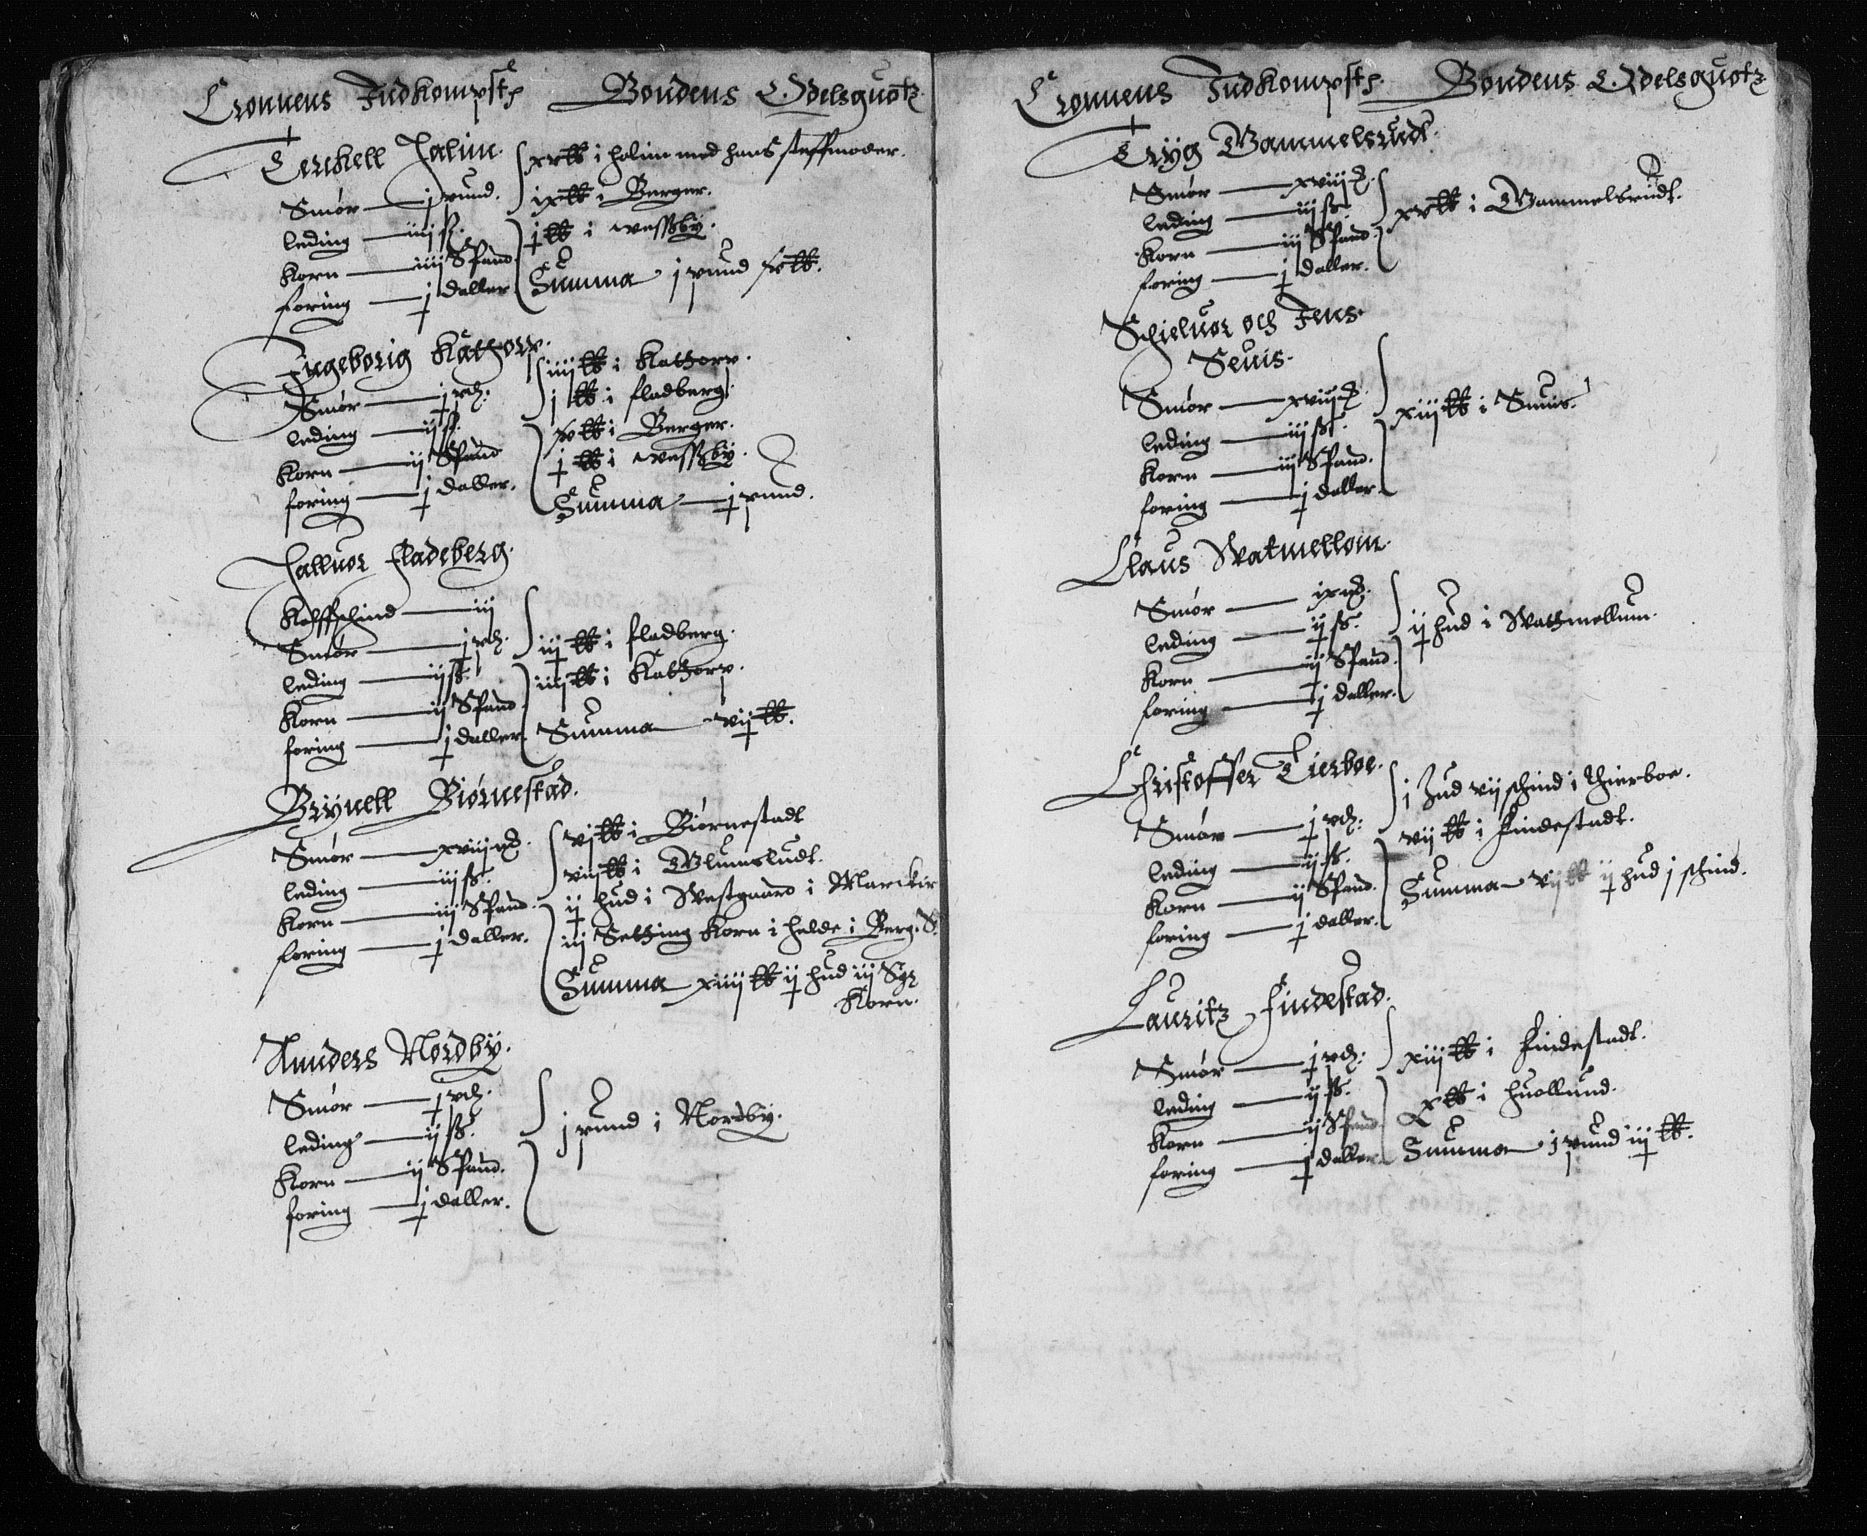 Cronnens Indkompst Bondens Odelsguotz
Terckell Halim.
Smør — j pund.
leding — iiij ß.
Korn — iiij Spand
foring — j daller
xv tt i holim med hans steffmoder.
ix tt i Berger.
j tt i wessby.
Summa j pund tt.
Ingeborig Kathorp.
Smør — j pd.
leding — ij ß.
Korn — ij Spand
foring — j daller.
iiij tt i Kathorp.
j tt i fladberg.
tt i Berger.
j tt i wessby.
Summa — j pund.
Halluor fladeberg.
Kalffschind — iij
Smør — j pd.
leding — ij ß.
Korn — ij Spand
foring — j daller.
iij tt i fladberg.
iiij tt i Kathorp.
Summa — vij tt.
Brynell Biørnestad.
Smør — xviij
leding — iij ß.
Korn — iij Spand.
foring — j daller.
vj tt i Biørnestadt
viij tt i
ij hud i Westgaard i Marckir
iij Sething Korn i helde i Berg. S.
Summa xiiij tt ij hud iij
Korn.
Anders Nordby.
Smør — j pd.
leding — ij ß.
Korn — ij Spand.
foring — j daller.
j pund i Nordby.
Cronnens Indkompst Bondens Odelsguotz
Tryg Gammelsrudt.
Smør — xviij
leding — iij ß.
Korn — iij Spand.
foring — j daller.
xv tt i Gammelsrudt.
Schieluor och Jens
Seuis.
Smør — xviij
leding — iij ß.
Korn — iij Spand.
foring — j daller.
xiij tt i Seuis.
Claus Watmellom.
Smør — ix
leding — ij ß.
Korn — ij Spand.
foring — j daller.
ij hud i Wathmellum.
Christoffer Tierboe.
Smør — j pd.
leding — ij ß.
Korn — ij Spand.
foring — j daller.
j hud vij schind i thierboe.
vij tt i findestadt.
Summa vij tt ij hud j schind.
Lauritz findestad.
Smør — j pd.
leding — ij ß.
Korn — ij Spand
foring — j daller
xiij tt i findestadt.
x tt i huollund.
Summa j pund iij tt.